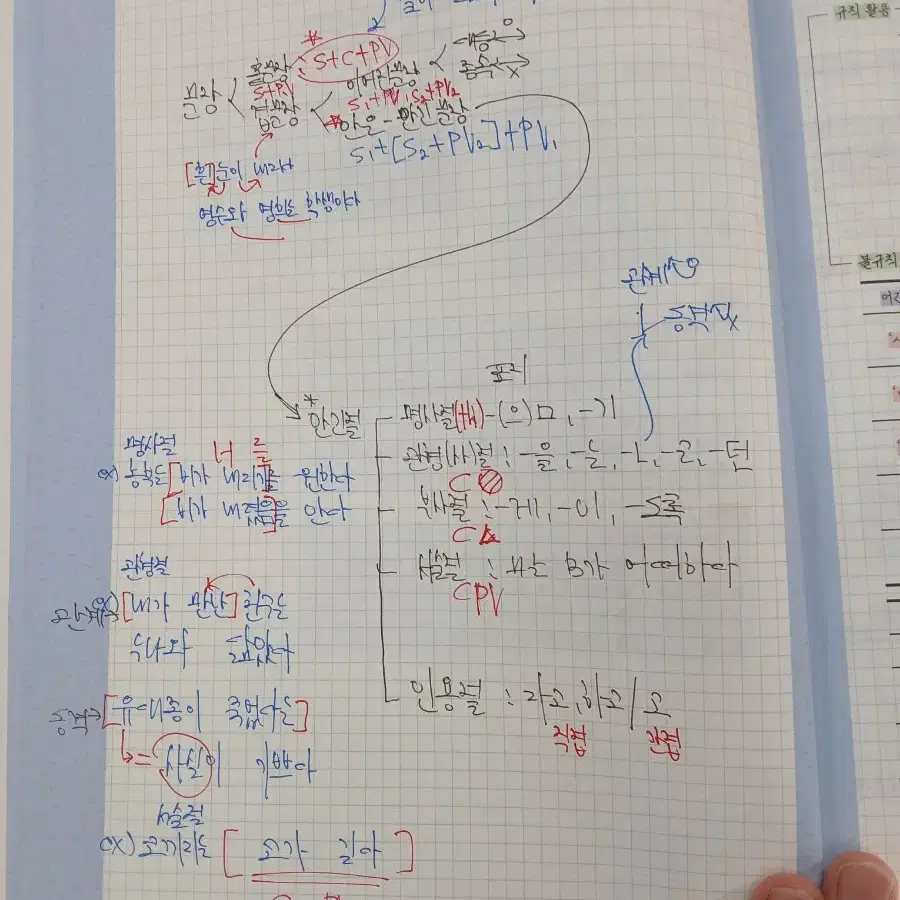 문장
홑문장 : S+C+PV
S+PV
겹문장
이어진문장
대등 O
종속 X
S₁+PV₁ S₂+PV₂
*안은-안긴문장
S₁+[S₂+PV₂]+PV₁
[흰]눈이 내려서
영수와 영희는 학생이다
관계 O
동격 X
표지
*안긴절
명사절(체)-(으)ㅁ, -기
관형(사)절 : -을, -는, -ㄴ, -ㄹ, -던
C
부사절 : -게, -이, -도록
C
서술절 : A는 B가 어떠하다
CPV
인용절 : 라고, 하고 / 고
직접 간접
명사절
ex) 농부는 [비가 내리기]를 원한다
[비가 내렸음]을 안다
관형절
관계 [내가 만난] 친구는
누나와 닮았다
동격→ [유대종이 죽었다는]
= 사실이 기쁘다
서술절
ex) 코끼리는 [코가 길다]
규칙 활용
불규칙